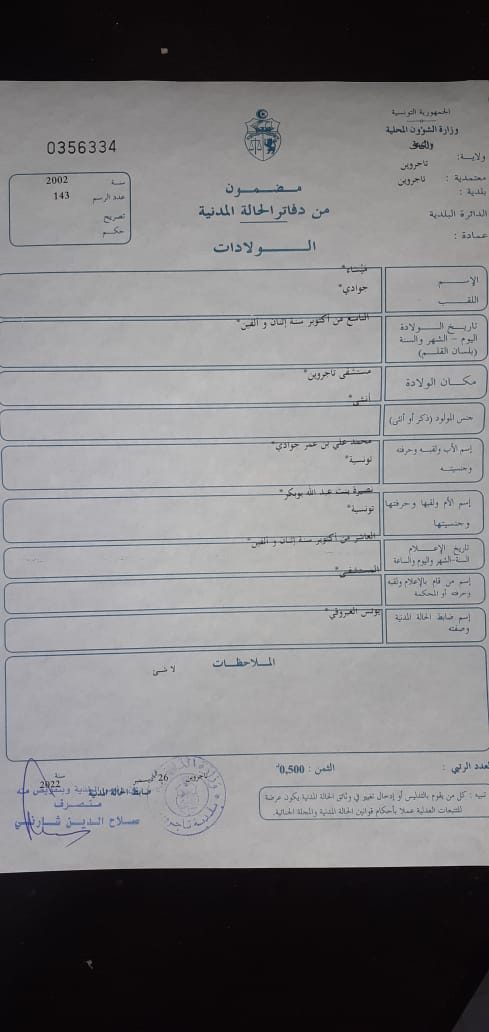 الجمهورية التونسية
وزارة الشؤون المحلية
ولاية :
معتمدية : تاجروين
بلدية : تاجروين
الدائرة البلدية
عمادة :
0356334
سنة 2002
عدد الرسم 143
تصريح
حكم
مضمون
من دفاتر الحالة المدنية
الولادات
الإسم
اللقب
جوادي*
تاريخ الولادة
اليوم - الشهر والسنة
(بلسان القلم)
التاسع من أكتوبر سنة إثنان و ألفين*
مكان الولادة
مستشفى تاجروين*
جنس المولود (ذكر أو أنثى)
أنثى*
إسم الأب ولقبه وحرفته
وجنسيته
محمد علي بن عمر جوادي*
تونسية*
إسم الأم ولقبها وحرفتها
وجنسيتها
نصيرة بنت عبد الله بوبكر*
تونسية*
تاريخ الإعلام
السنة-الشهر واليوم والساعة
العاشر من أكتوبر سنة إثنان و ألفين*
إسم من قام بالإعلام ولقبه
وحرفته أو المحكمة
المستشفى*
إسم ضابط الحالة المدنية
وصفته
يونس
الملاحظات
لا شئ
العدد الرتبي :
الثمن : 0,500د
تاجروين 26 ديسمبر سنة 2022
ضابط الحالة المدنية
وبتفويض منه
متصرف
صلاح الدين شارني
تنبيه : كل من يقوم بالتدليس أو إدخال تغيير في وثائق الحالة المدنية يكون عرضة
للتتبعات العدلية عملا بأحكام قوانين الحالة المدنية والمجلة الجنائية.